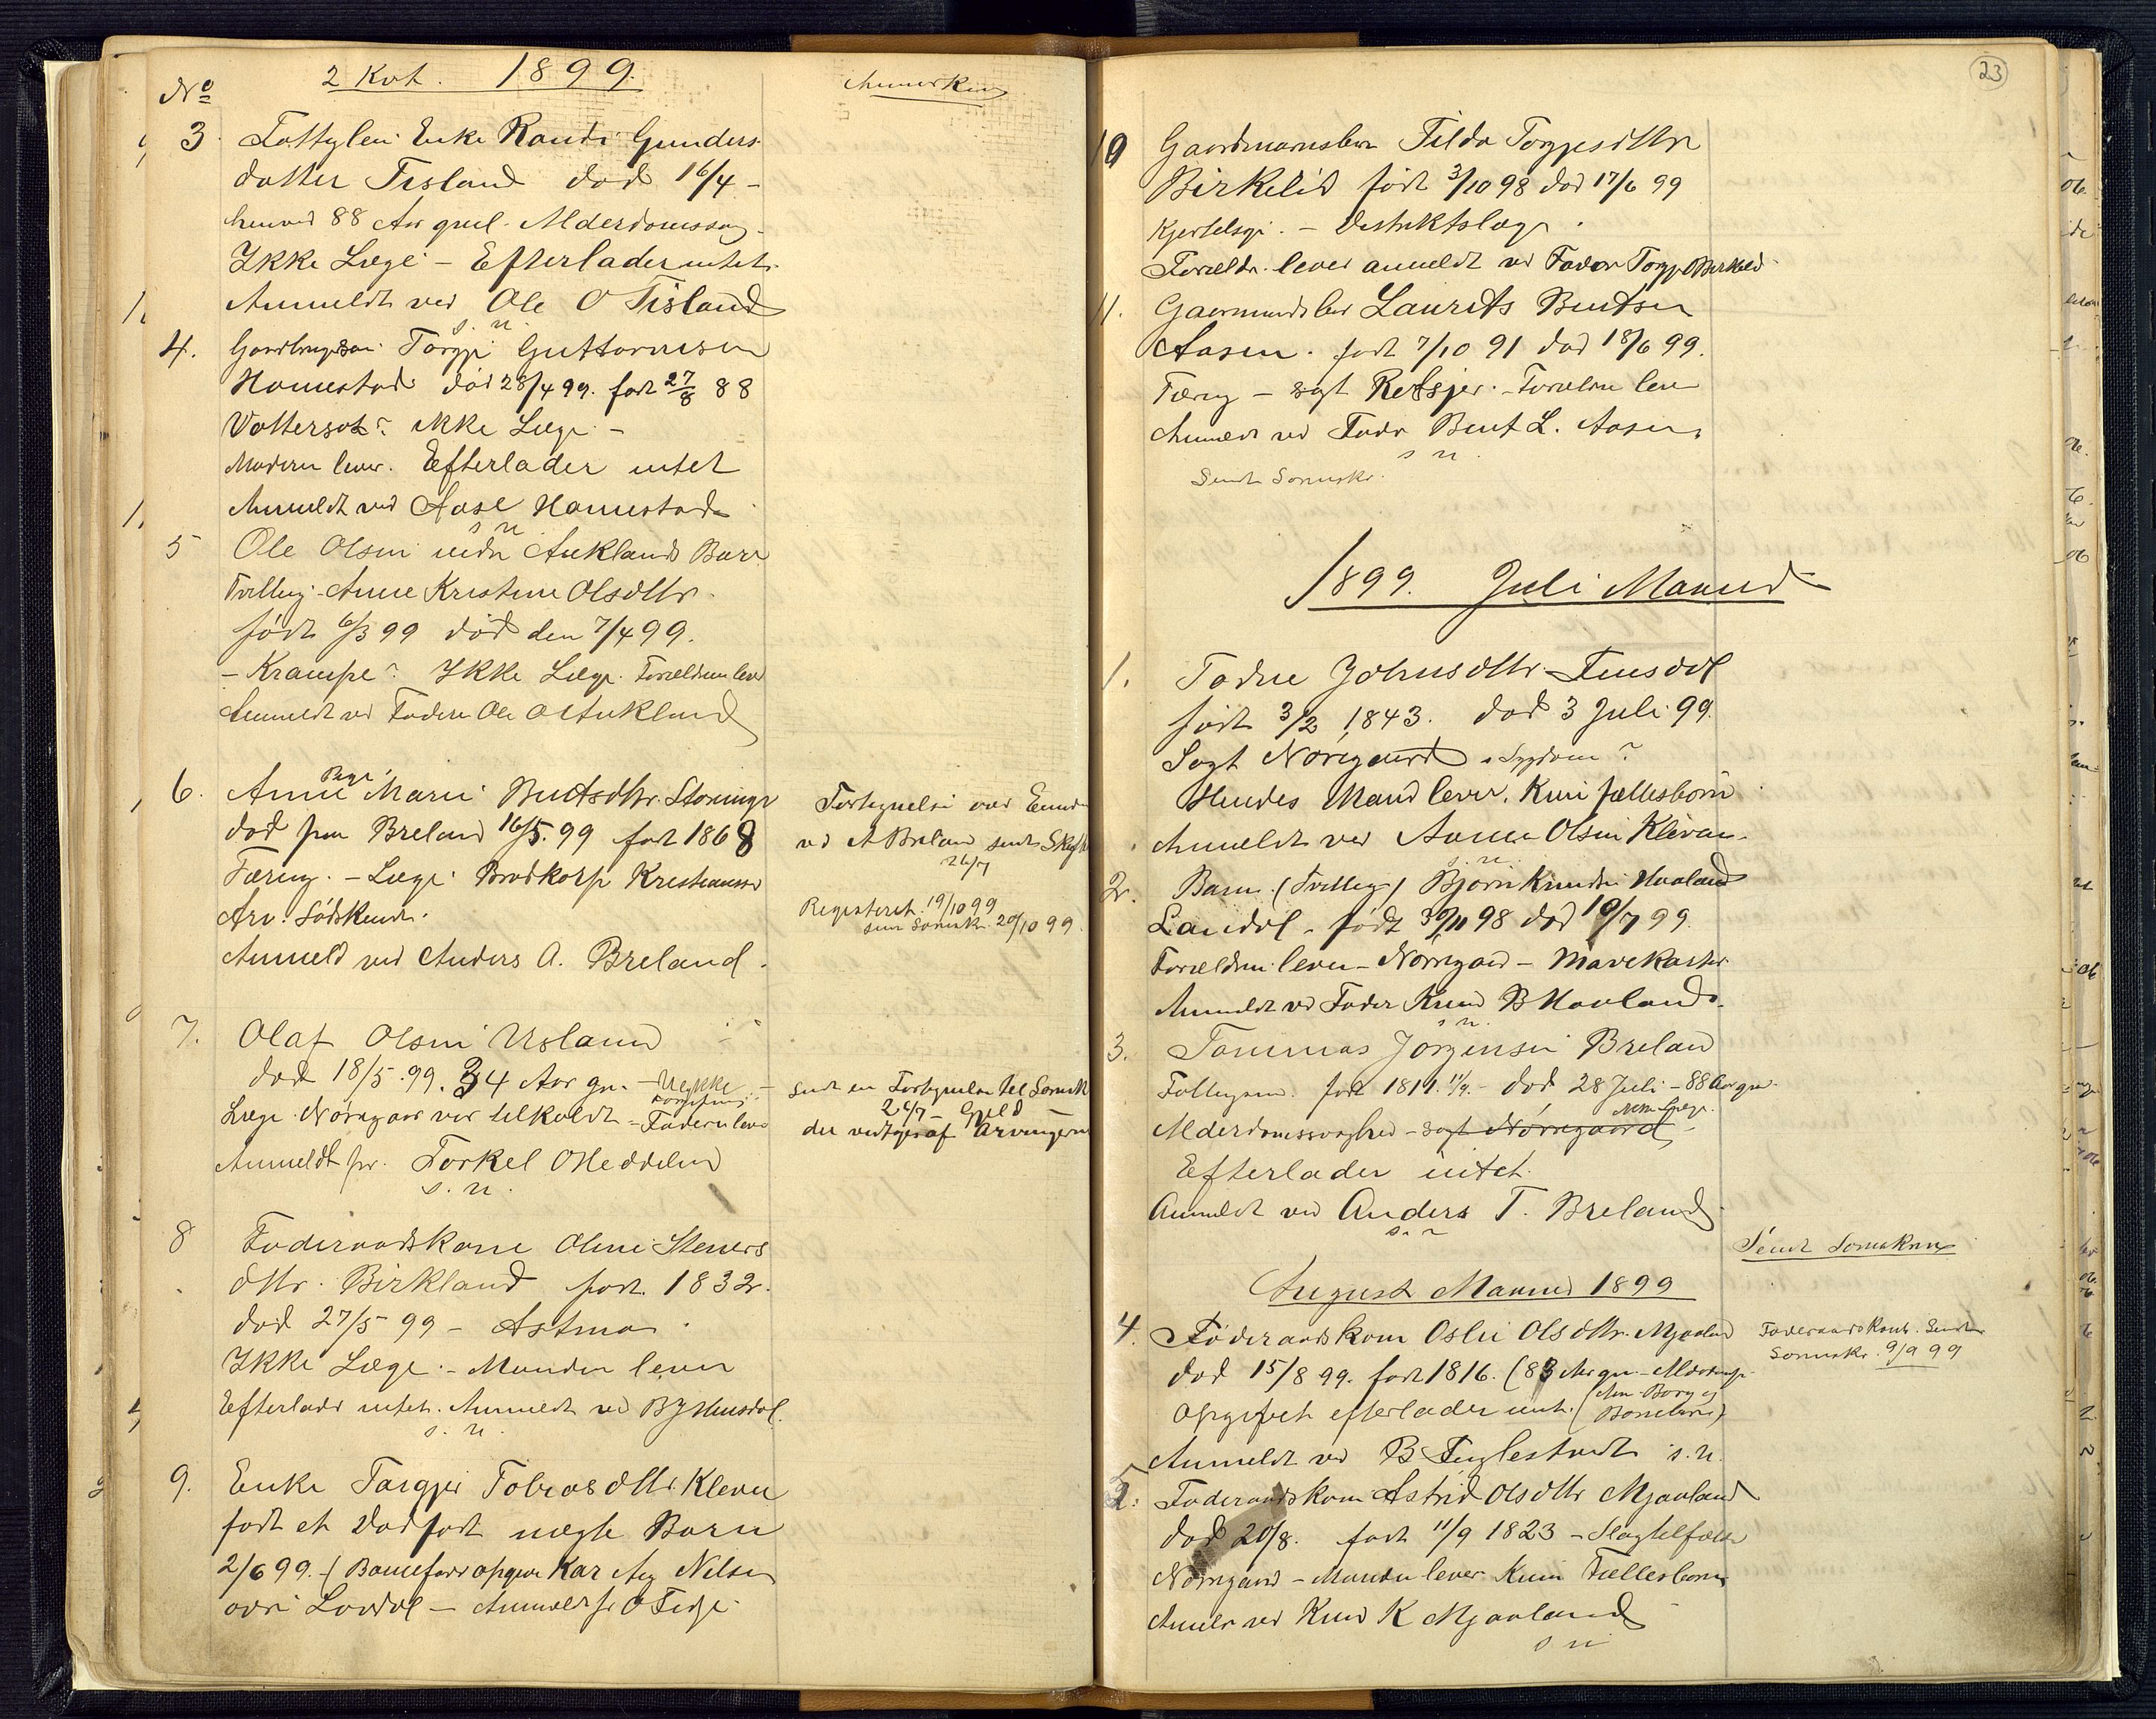 No 2 Kvt. 1899. Anmerkning
3. Fattiglem Enke Randi Gunders
datter Tisland død 16/4 -
henved 88 Aar gml. Alderdomssvag -
Ikke Læge - Efterlader intet.
Anmeldt ved Ole O Tisland
s. n.
4. Torgje Guttormsen
Homestad død 28/4 99. født 27/8 88
Vattersot? ikke Læge -
Moderen lever. Efterlader intet
Anmeldt ved Aase Homestad
s n
5 Ole Olsen nedre Auklands Barn
Tvilling Anne Kristine Olsdtr.
født 6/3 99 død den 7/4 99.
- Krampe? Ikke Læge. Forældrene lever
Anmeldt ved Faderen Ole O Aukland
6. Anne Marie Bentsdtr.
død paa Breland 16/5. 99 født 1868
Tæring. - Læge Brodkorp Kristianssd
Arv. Sødskende.
Anmeldt ved Anders A. Breland.
Fortegnelse over
ved A Breland sendt
26/7
Registeret 19/10 99
20/10 99.
7. Olaf Olsen Usland
død 18/5. 99. 34 Aar gm. -
Læge Nørregaard var tilkaldt - Faderen lever
Anmeldt fr. Torkel O Heddeland
s. n.
sendt en Fortegnelse til
26/7 - Gjeld
der vedtages af Arvingerne
8 Føderaadskone Olene Steners
dtr. Birkland født 1832.
død 27/5 99 - Astma
Ikke Læge. - Manden lever
Efterlader intet. Anmeldt ved B J
s. n.
9. Enke Targjer Tobiasdtr. Kleven
født et dødfødt uægte Barn
2/6 99. (Barnefader opgives Nilsen
øvre Lauvdal - Anmeldt fr O
23
10 Gaardmandsbarn Tilda Torgjesdtr
Birkelid født 3/10 98 død 17/6 99
Kjertelsyg. - Distriktslæge.
Forældr. lever anmeldt ved Fader Torgje O Birkelid
11. Laurits Bentsen
Aasen. født 7/10 91 død 18/6 99.
Tæring - søgt - Forældre lever
Anmeldt ved Fader Bent L. Aasen.
s n
Sendt
1899. Juli Maaned
1. Todne Johnsdtr.
født 3/2 1843. død 3 Juli 99.
Søgt Nørregaard. Sygdom?
Hendes Mand lever. Kun fællesbørn
Anmeldt ved Olsen Kleven.
s. n.
2. Barn (Tvilling) Bjørn Knudsen Haaland
født 30/11 98 død 10/7 99.
Forældrene lever - Nørregaard - Mavekatar
Anmeldt ved Fader Knud B Haaland.
s n.
3. Tommas Jørgensen Breland
født 1811. 11/9. - død 28 Juli - 88 Aar gm.
Alderdomssvaghed - søgt Nørregaard
Efterlader intet.
Anmeldt ved Anders T. Breland
s. n
Sendt
August Maaned 1899
4. Føderaadskone Oslie Olsdtr. Mjaaland
død 15/8 99. født 1816. (83 Aar gm -
efterlader intet.
Anmeldt ved B Fuglestvedt s. n.
Føderaadskone. Sendt
9/9 99
5. Føderaadskone Astrid Olsdtr Mjaaland
død 20/8. født 11/9 1823 -
Nørregaard - Manden lever Kun Fællesbørn
Anmeldt ved Knud K Mjaaland
s n